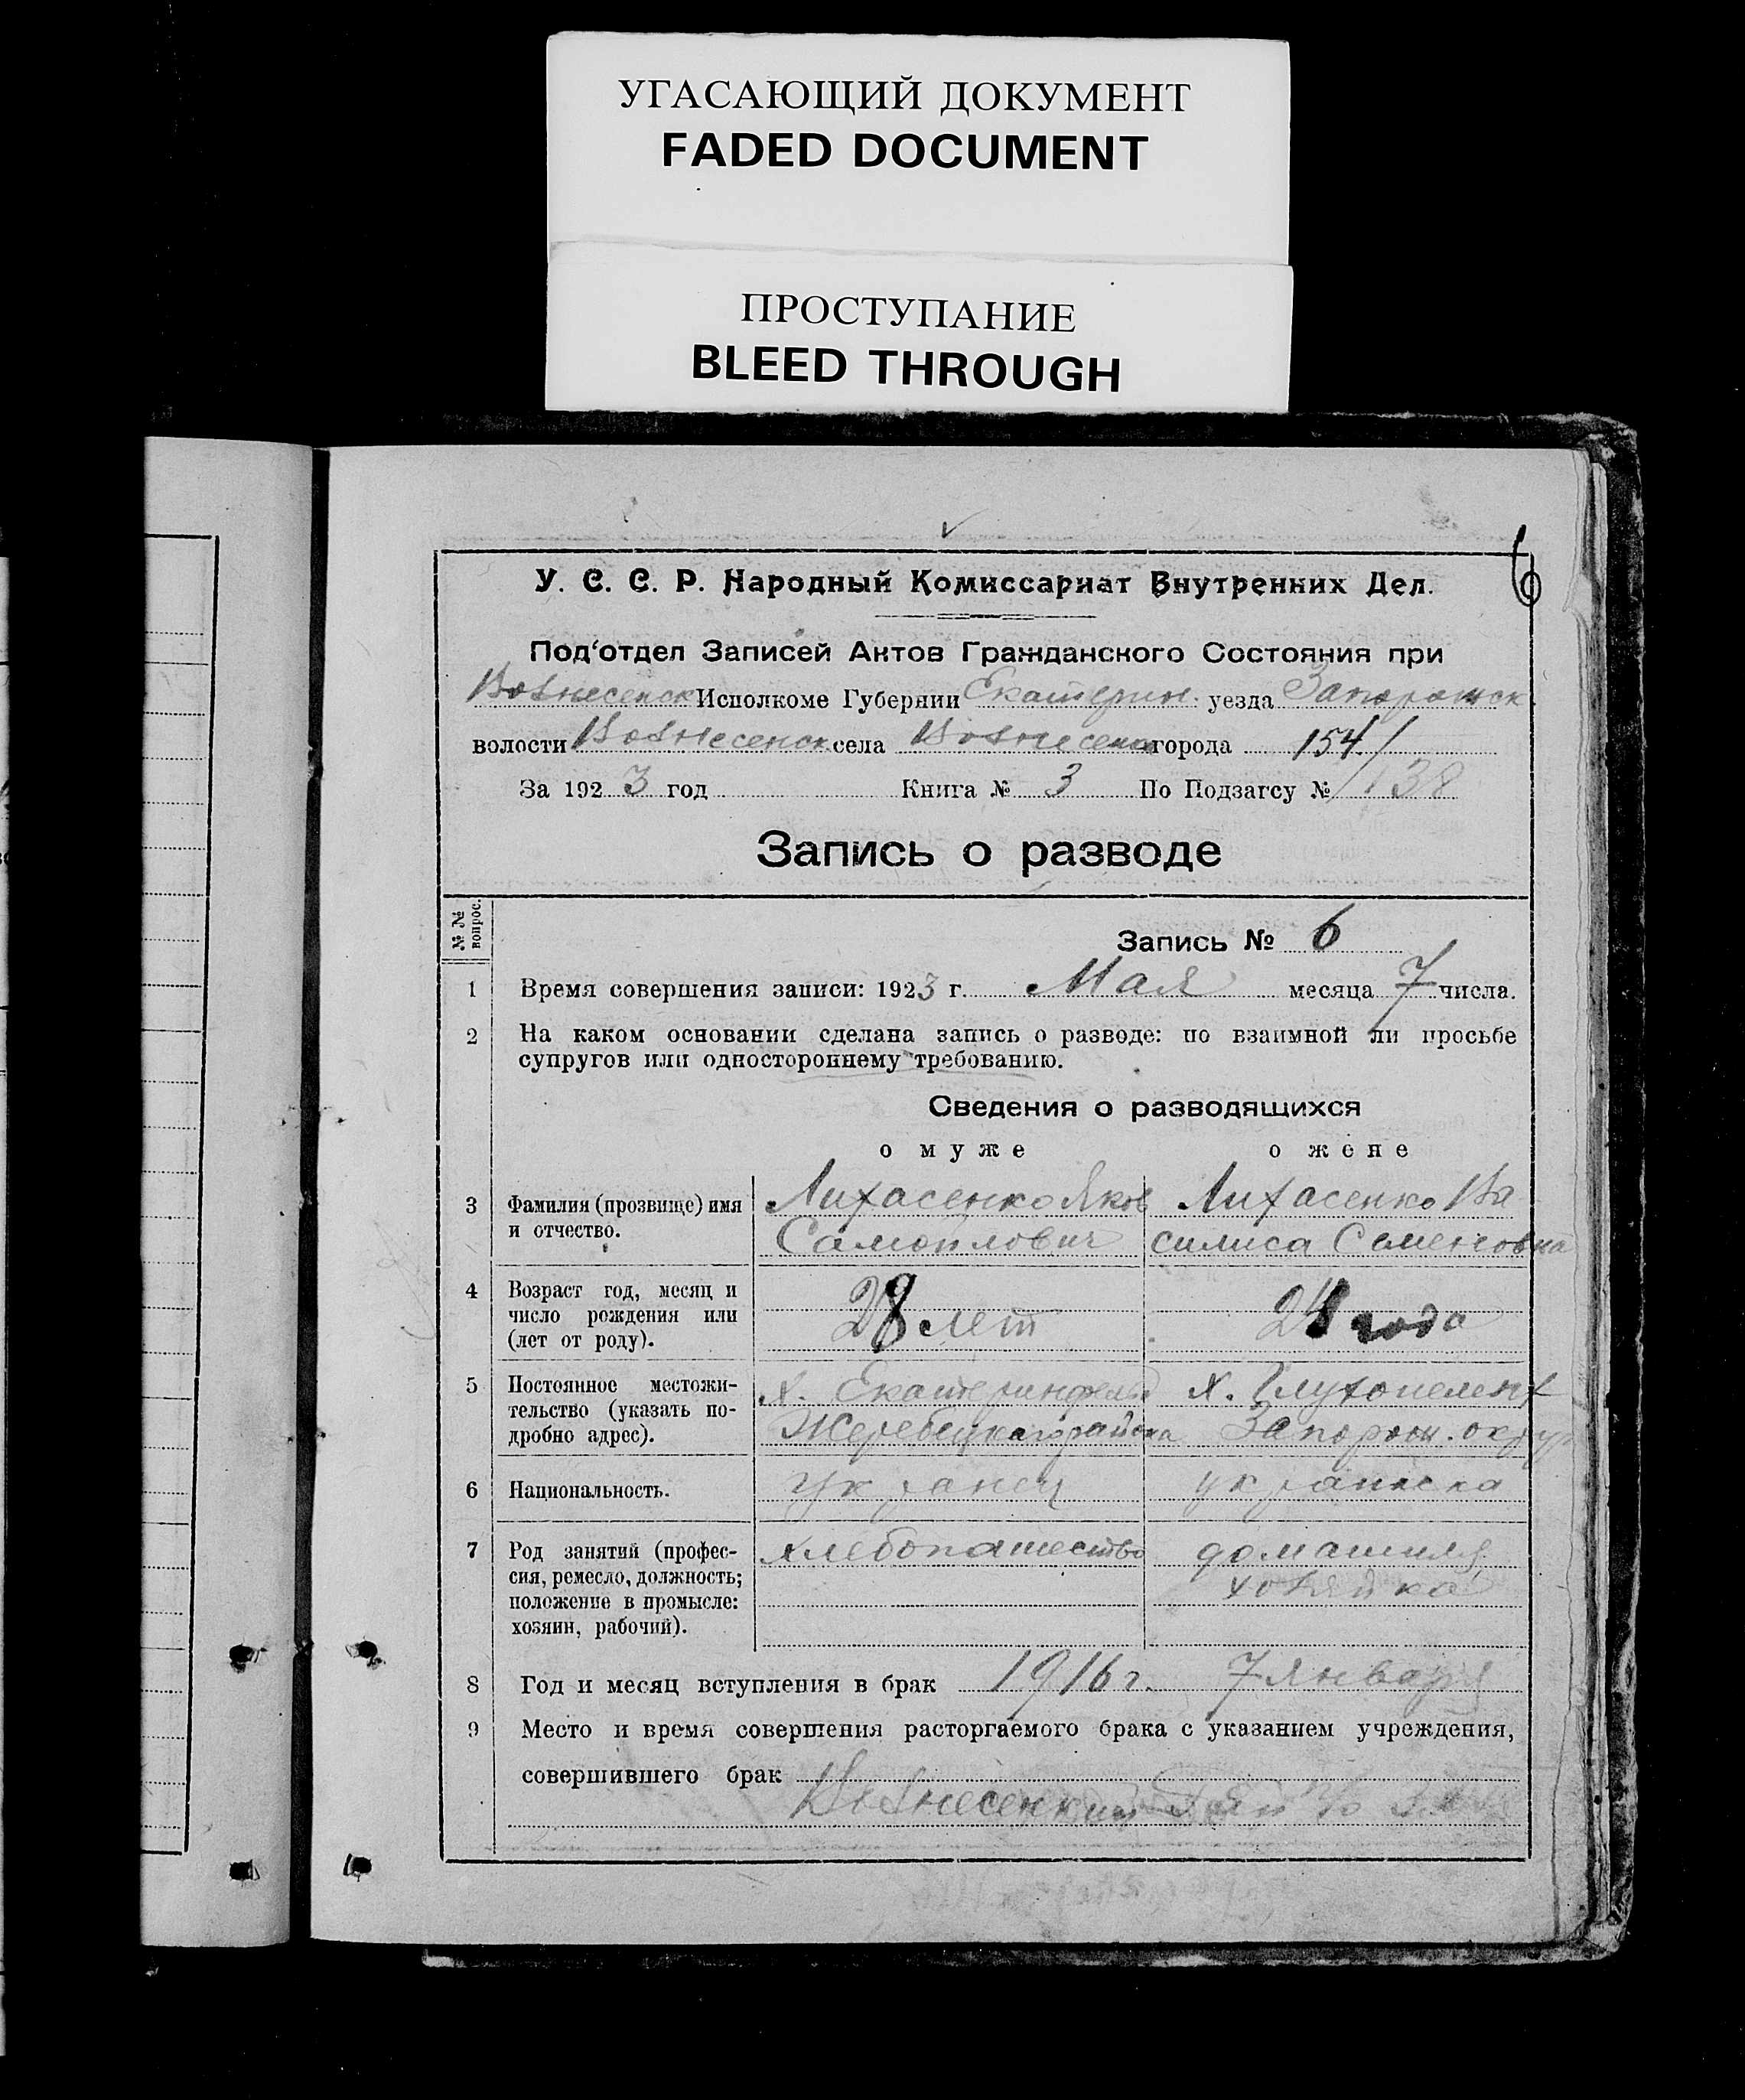 УГАСАЮЩИЙ ДОКУМЕНТ
FADED DOCUMENT
ПРОСТУПАНИЕ
BLEED THROUGH
6
У. С. С. Р. Народный Комиссариат Внутренних Дел.
Под‘отдел Записей Актов Гражданского Состояния при
Вознесенск Исполкоме Губернии Екатерин. уезда Запорожск.
волости Вознесенск. села Вознесенск города 154/
За 1923 год Книга № 3 По Подзагсу № 138
Запись о разводе
№ № вопрос.
Запись № 6
1 Время совершения записи: 1923 г. Мая месяца 7 числа.
2 На каком основании сделана запись о разводе: по взаимной ли просьбе
супругов или одностороннему требованию.
Сведения о разводящихся
о муже о жене
3 Фамилия (прозвище) имя Лихасенко Яков Лихасенко Ва
и отчество. Самойлович силиса Семеновна
4 Возраст год, месяц и
число рождения или 28 лет 24 года
(лет от роду).
5 Постоянное местожи- х. Екатеринфельд х.
тельство (указать по- Жеребецкаго района Запорож. округ
дробно адрес).
6 Национальность. Укранец украинска
7 Род занятий (профес- хлебопашество домашняя
сия, ремесло, должность; хозяйка
положение в промысле:
хозяин, рабочий).
8 Год и месяц вступления в брак 1916 г. 7 января
9 Место и время совершения расторгаемого брака с указанием учреждения,
совершившего брак